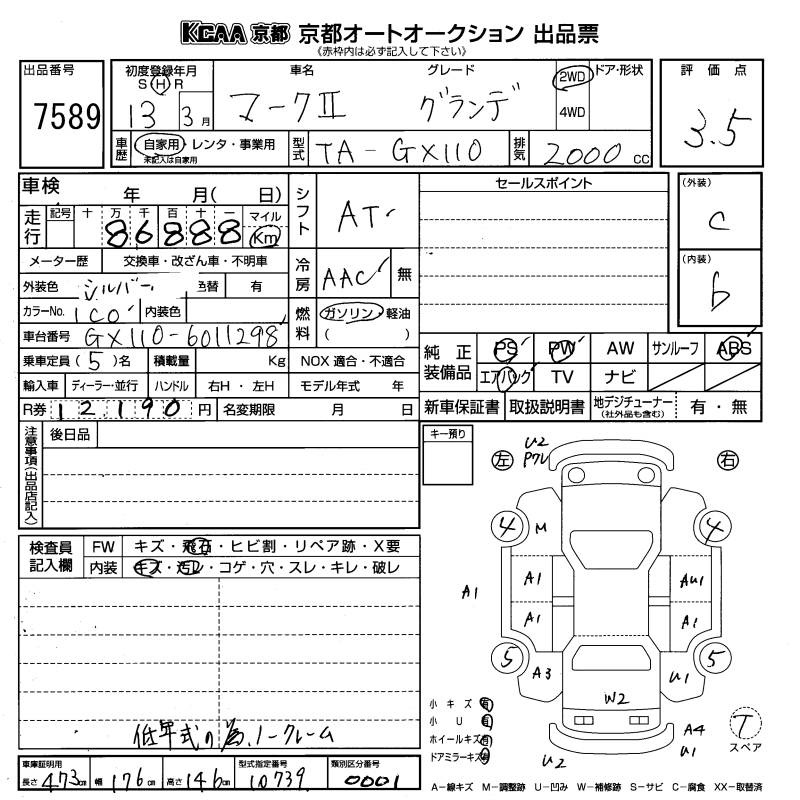 KCAA 京都 京都オートオークション 出品票
《赤枠内は必ず記入して下さい》
出品番号
7589
初度登録年月
S H R
13 3月
車名
マークII
グレード
グランデ
2WD
4WD
ドア・形状
評価点
3.5
車歴
自家用・レンタ・事業用
未記入は自家用
型式
TA-GX110
排気
2000 cc
車検 年 月( 日)
走行
記号 十 万 千 百 十 一 マイル
86888 Km
メーター歴 交換車・改ざん車・不明車
外装色 シルバー 色替 有
カラーNo. 1C0 内装色
車台番号 GX110-6011298
乗車定員(5)名 積載量 Kg NOX 適合・不適合
輸入車 ディーラー・並行 ハンドル 右H・左H モデル年式 年
R券 12190円 名変期限 月 日
シフト AT
冷房 AAC 無
燃料 ガソリン 軽油
( )
セールスポイント
(外装)
C
(内装)
b
純正装備品
PS PW AW サンルーフ ABS
エアバッグ TV ナビ
新車保証書 取扱説明書 地デジチューナー(社外品も含む) 有・無
注意事項(出品店記入)
後日品
キー預り
検査員記入欄
FW キズ・飛石・ヒビ割・リペア跡・X要
内装 キズ・汚レ・コゲ・穴・スレ・キレ・破レ
低年式の為ノークレーム
左 右
U2
P7L
4 M 4
A1 A1 AU1
A1 A1
5 A3 U1 5
W2
A4
U1
U2
T
スペア
小キズ 有
小U 有
ホイールキズ 有
ドアミラーキズ 有
車庫証明用
長さ 473cm 幅 176cm 高さ 146cm
型式指定番号
10739
類別区分番号
0001
A－線キズ M－調整跡 U－凹み W－補修跡 S－サビ C－腐食 XX－取替済